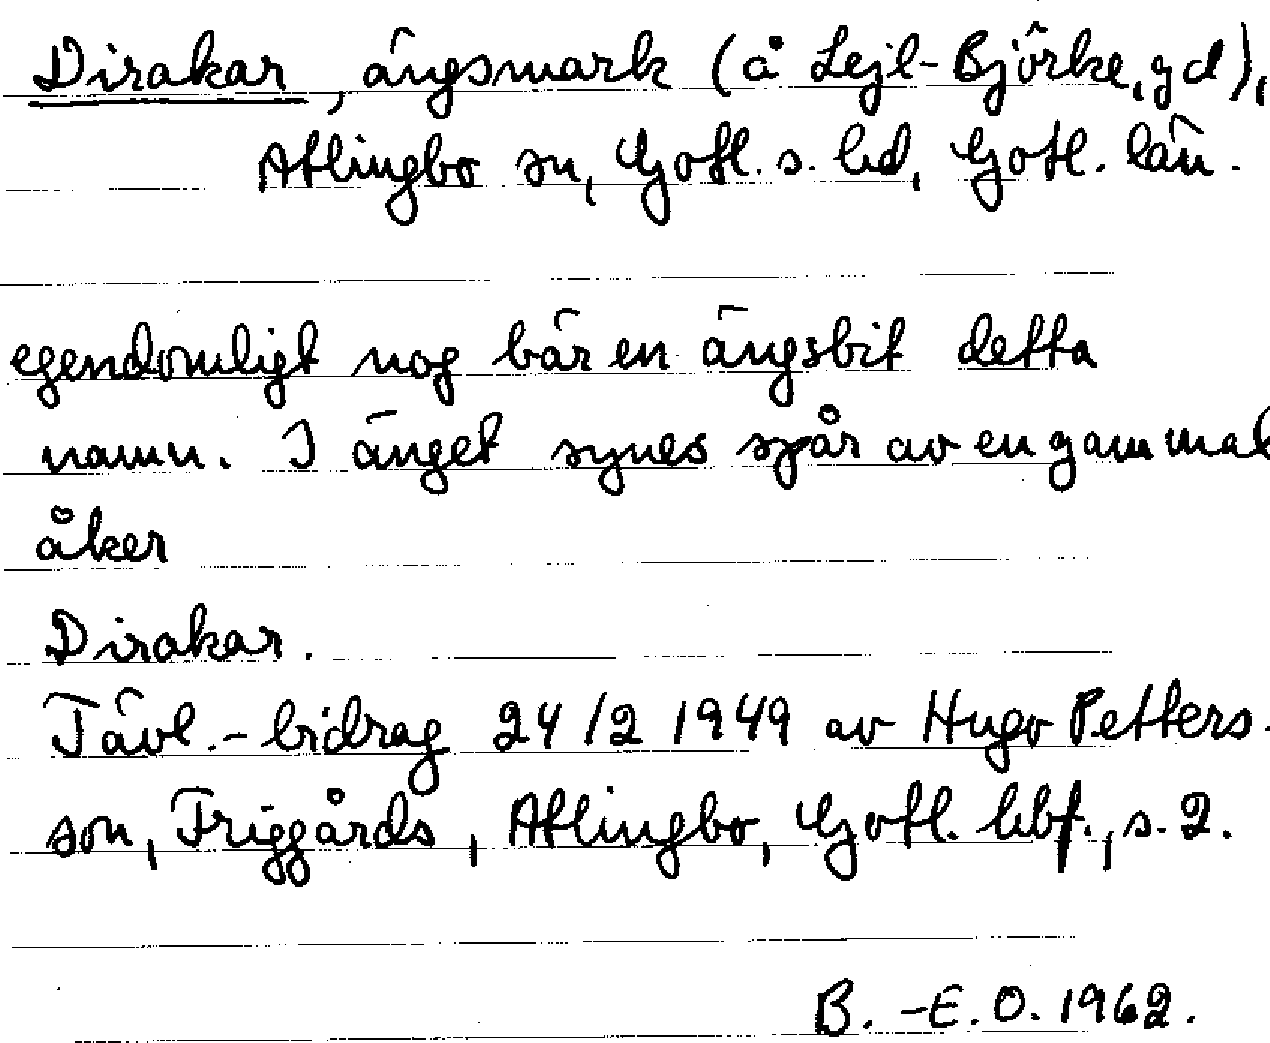 Dirakar, ängsmark (å Lejl-Björke, gd),
Atlingbo sn, Gotl. s. hd, Gotl. län.
egendomligt nog bär en ängsbit detta
namn. I änget synes spår av en gammal
åker
Dirakar.
Tävl.-bidrag 24/2 1949 av Hugo Petters-
son, Friggårds, Atlingbo, Gotl. hbf., s. 2.
B.-E.O. 1962.